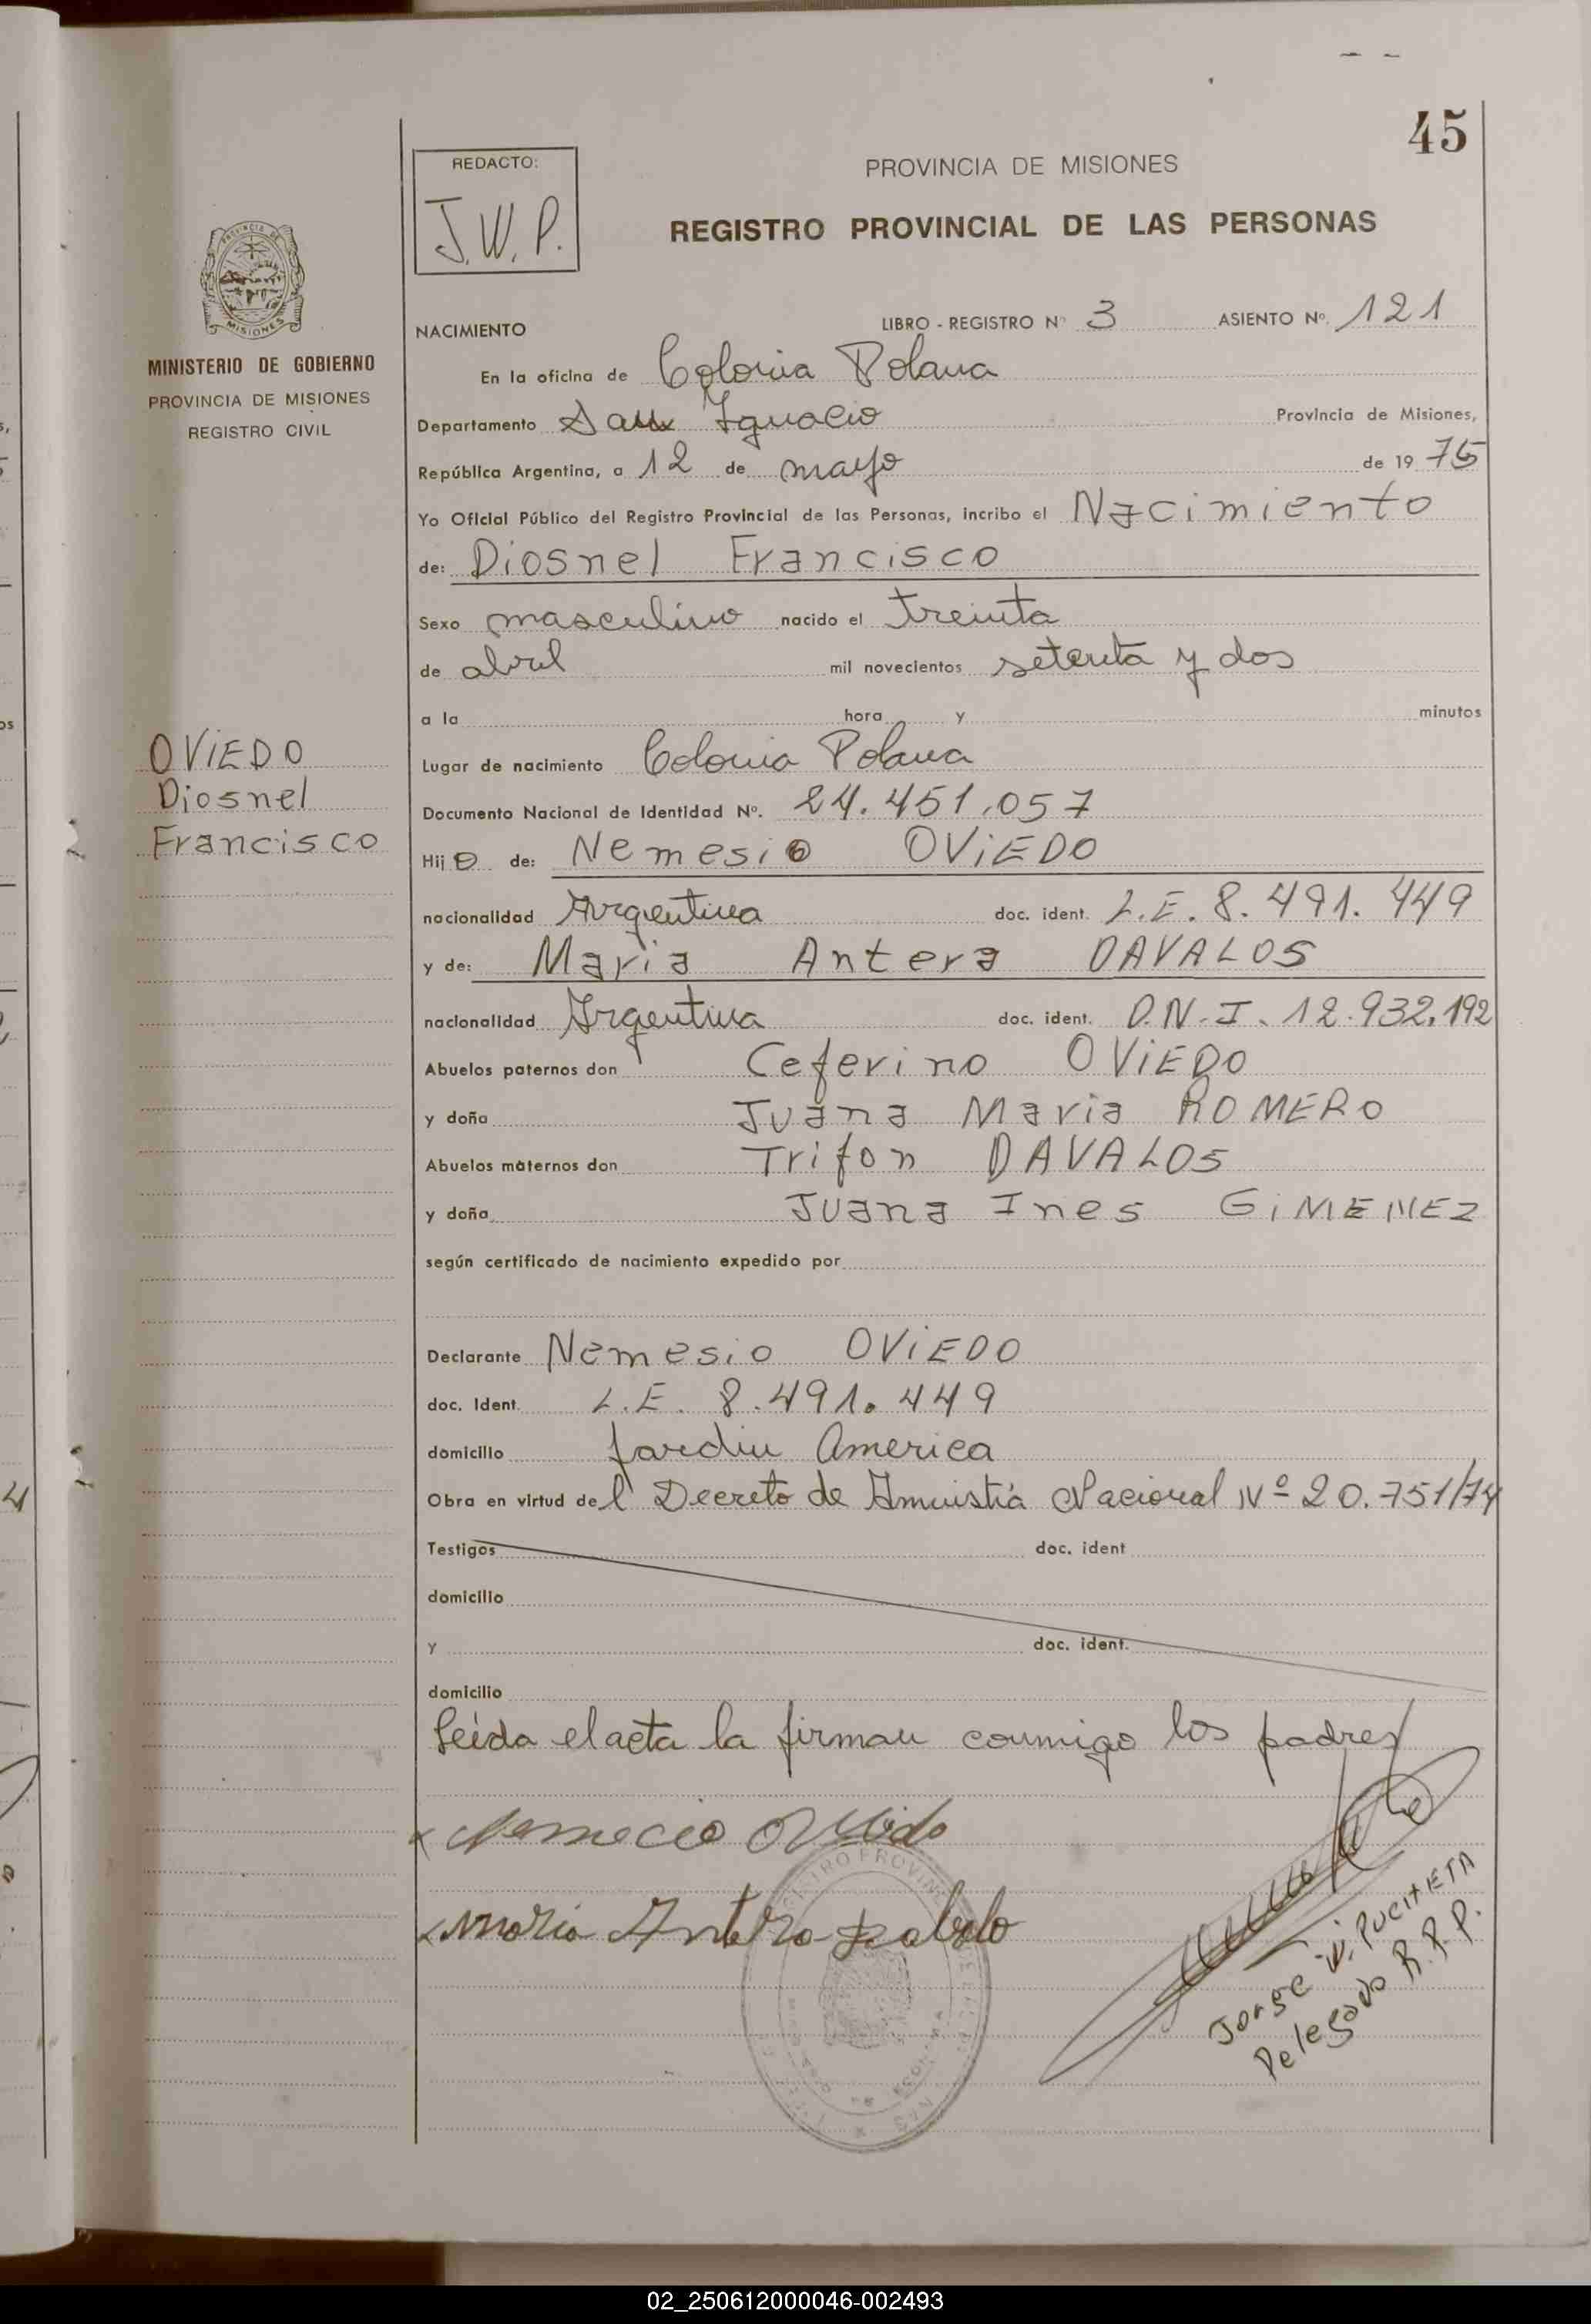 45
REDACTO:
J.W.P.
PROVINCIA DE MISIONES
REGISTRO PROVINCIAL DE LAS PERSONAS
MISIONES
MINISTERIO DE GOBIERNO
PROVINCIA DE MISIONES
REGISTRO CIVIL
NACIMIENTO LIBRO - REGISTRO Nº 3 ASIENTO Nº. 121
En la oficina de Colonia Polana
Departamento San Ignacio Provincia de Misiones,
República Argentina, a 12 de mayo de 19 75
Yo Oficial Público del Registro Provincial de las Personas, incribo el Nacimiento
de: Diosnel Francisco
Sexo masculino nacido el treinta
de abril mil novecientos setenta y dos
a la hora y minutos
OVIEDO
Diosnel
Francisco
Lugar de nacimiento Colonia Polana
Documento Nacional de Identidad Nº. 24.451.057
Hijo de: Nemesio OVIEDO
nacionalidad Argentina doc. ident. L.E. 8.491.449
y de: Maria Antera DAVALOS
nacionalidad Argentina doc. ident. D.N.I. 12.932.192
Abuelos paternos don Ceferino OVIEDO
y doña Juana Maria ROMERO
Abuelos maternos don Trifon DAVALOS
y doña Juana Ines GIMENEZ
según certificado de nacimiento expedido por
Declarante Nemesio OVIEDO
doc. Ident. L.E. 8.491.449
domicilio Jardin America
Obra en virtud del Decreto de Amnistía Nacional Nº 20.751/74
Testigos doc. ident
domicilio
y doc. ident.
domicilio
Leída el acta la firman conmigo los padres
x Nemecio Obiedo
x Maria Antera
Jorge W. PUCHETA
Delegado R.P.P.
02_250612000046-002493